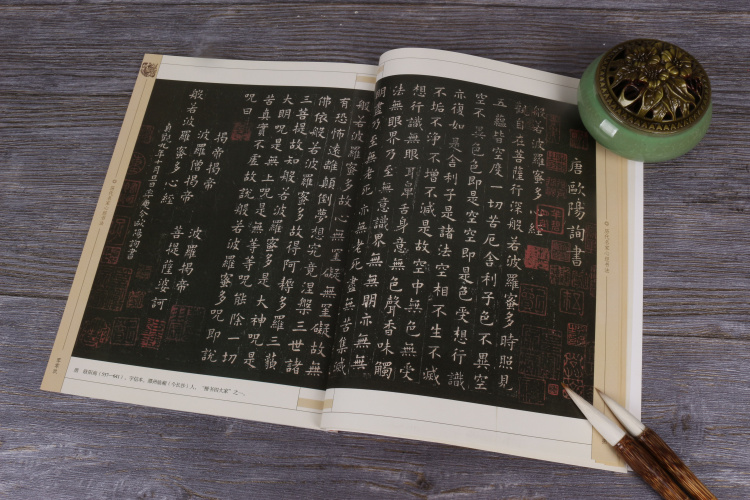 唐歐陽詢書
般若波羅蜜多心經
觀自在菩薩行深般若波羅蜜多時照見
五蘊皆空度一切苦厄舍利子色不異空
空不異色色即是空空即是色受想行識
亦復如是舍利子是諸法空相不生不滅
不垢不淨不增不減是故空中無色無受
想行識無眼耳鼻舌身意無色聲香味觸
法無眼界乃至無意識界無無明亦無無
明盡乃至無老死亦無老死盡無苦集滅
般若波羅蜜多故心無罣礙無罣礙故無
有恐怖遠離顛倒夢想究竟涅槃三世諸
佛依般若波羅蜜多故得阿耨多羅三藐
三菩提故知般若波羅蜜多是大神呪是
大明呪是無上呪是無等等呪能除一切
苦真實不虛故說般若波羅蜜多呪即說
呪曰
揭帝揭帝 波羅揭帝
波羅僧揭帝 菩提薩婆訶
般若波羅蜜多心經
貞觀九年十月旦日率更令歐陽詢書